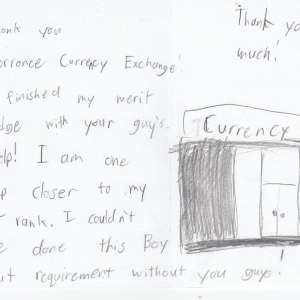 ank you
orrance Currency Exchange!
finished my merit
dge with your guy's.
elp! I am one
p closer to my
rank. I couldn't
e done this Boy
ut requirement without you guys!
Thank yo
much!
Currency